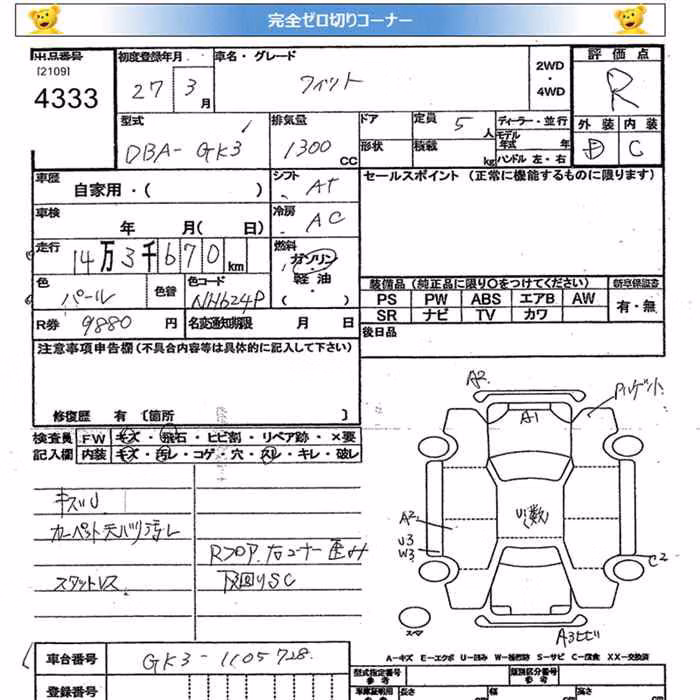 完全ゼロ切りコーナー
出品番号 初度登録年月 車名・グレード 評価点
[2109]
4333
27 3月 フィット 2WD・4WD R
型式 排気量 ドア 定員 5人 ディーラー・並行 外装 内装
DBA-GK3 1300CC 形状 積載 kg モデル年式 年 ハンドル 左・右 D C
車歴 自家用・( ) シフト AT セールスポイント (正常に機能するものに限ります)
車検 年 月(日) 冷房 AC
走行 14万3千670km 燃料 ガソリン 軽油 ・( )
色 パール 色替 色コード NH624P
装備品 (純正品に限り○をつけてください) 新車保証書
PS PW ABS エアB AW 有・無
SR ナビ TV カワ
R券 9880円 名変通知期限 月 日 後日品
注意事項申告欄(不具合内容等は具体的に記入して下さい)
修復歴 有 [箇所 ]
検査員 FW キズ・飛石・ヒビ割・リペア跡・×要
記入欄 内装 キズ・汚レ・コゲ・穴・スレ・キレ・破レ
キズU
カーペット天バリ汚レ
Rフロア.右コーナー歪み
スタットレス
下回りSC
A2
A1
U(数)
A2
U3
W3
C2
スペア
A3ヒビ
A-キズ E-エクボ U-凹み W-補修跡 S-サビ C-腐食 XX-交換済
車台番号 GK3-1105728
登録番号
型式指定番号 参考 類別区分番号 参考
長さ 幅 高さ